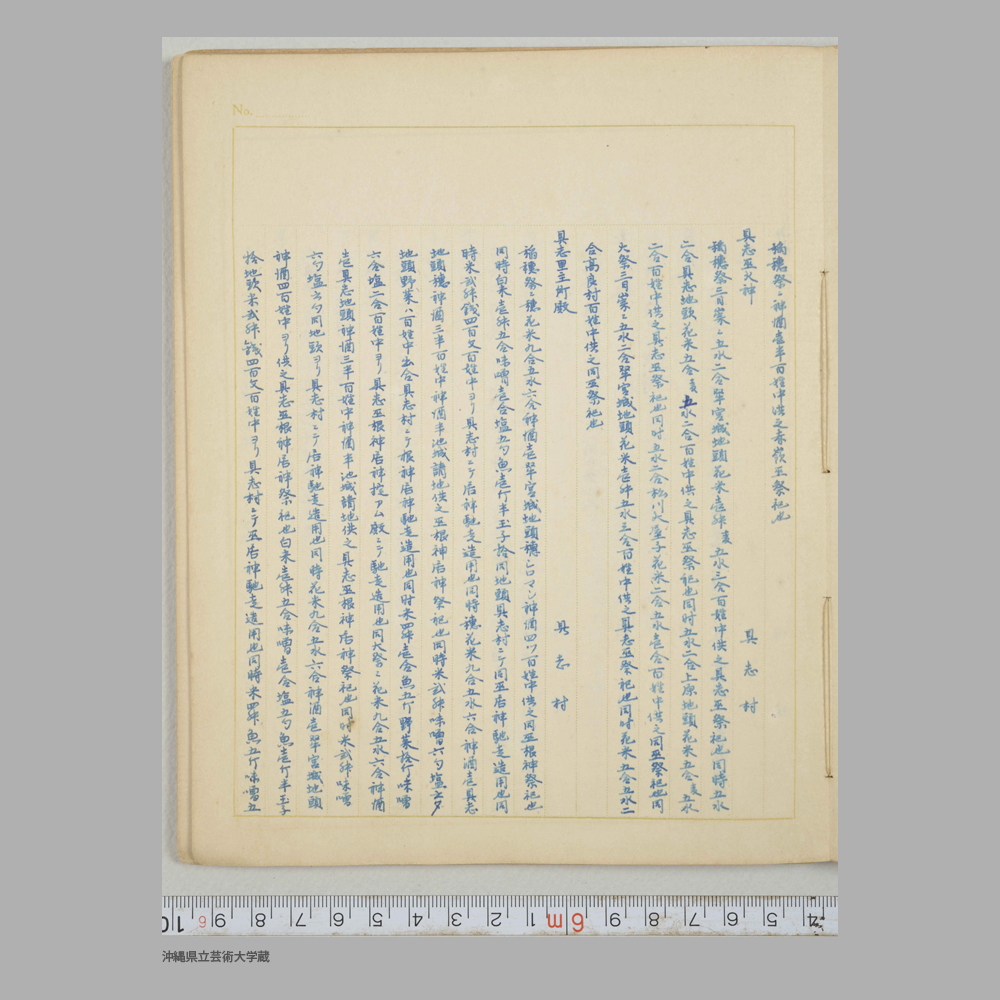 No.
稲穂祭ニ神酒壱半百姓中供之赤嶺巫祭祀也
具志巫火神
具志村
稲穂祭三日崇ニ五水二合翠宮城地頭花米壱舛宛五水三合百姓中供之具志巫祭祀也同時五水
二合具志地頭花米五合宛五水二合百姓中供之具志巫祭祀也同时五水二合上原地頭花米五合宛五水
二合百姓中供之具志巫祭祀也同时五水二合松川大屋子花米二合五水壱合百姓中供之同巫祭祀也同
大祭三日崇ニ五水二合翠宮城地頭花米壱舛五水三合百姓中供之具志巫祭祀也同时花米五合五水二
合高良村百姓中供之同巫祭祀也
具志里主所殿
具志村
稲穂祭ニ穂花米九合五水六合神酒壱翠宮城地頭穂シロマシ神酒四ツ百姓中供之同巫根神祭祀也
同時白米壱舛五合味噌壱合塩五勺魚壱斤半玉子拾同地頭具志村ニテ同巫居神馳走造用也同
時米弐舛銭四百文百姓中ヨリ具志村ニテ居神馳走造用也同時穂花米九合五水六合神酒壱具志
地頭穂神酒三半百姓中神酒半池城諸地供之巫根神居神祭祀也同時米弐舛味噌六勺塩
地頭野菜ハ百姓中出合具志村ニテ根神居神馳走造用也同时米四舛壱合魚五斤野菜拾斤味噌
六合塩二合百姓中ヨリ具志巫根神居神掟アム殿ニテ馳走造用也同大祭ニ花米九合五水六合神酒
壱具志地頭神酒三半百姓中神酒半池城諸地供之具志巫根神居神祭祀也同时米弐舛味噌
六勺塩六勺同地頭ヨリ具志村ニテ居神馳走造用也同時花米九合五水六合神酒壱翠宮城地頭
神酒四百姓中ヨリ供之具志巫根神居神祭祀也白米壱舛五合味噌壱合塩五勺魚壱斤半玉子
拾地頭米弐舛銭四百文百姓中ヨリ具志村ニテ巫居神馳走造用也同時米四舛魚五斤味噌五
沖縄県立芸術大学蔵